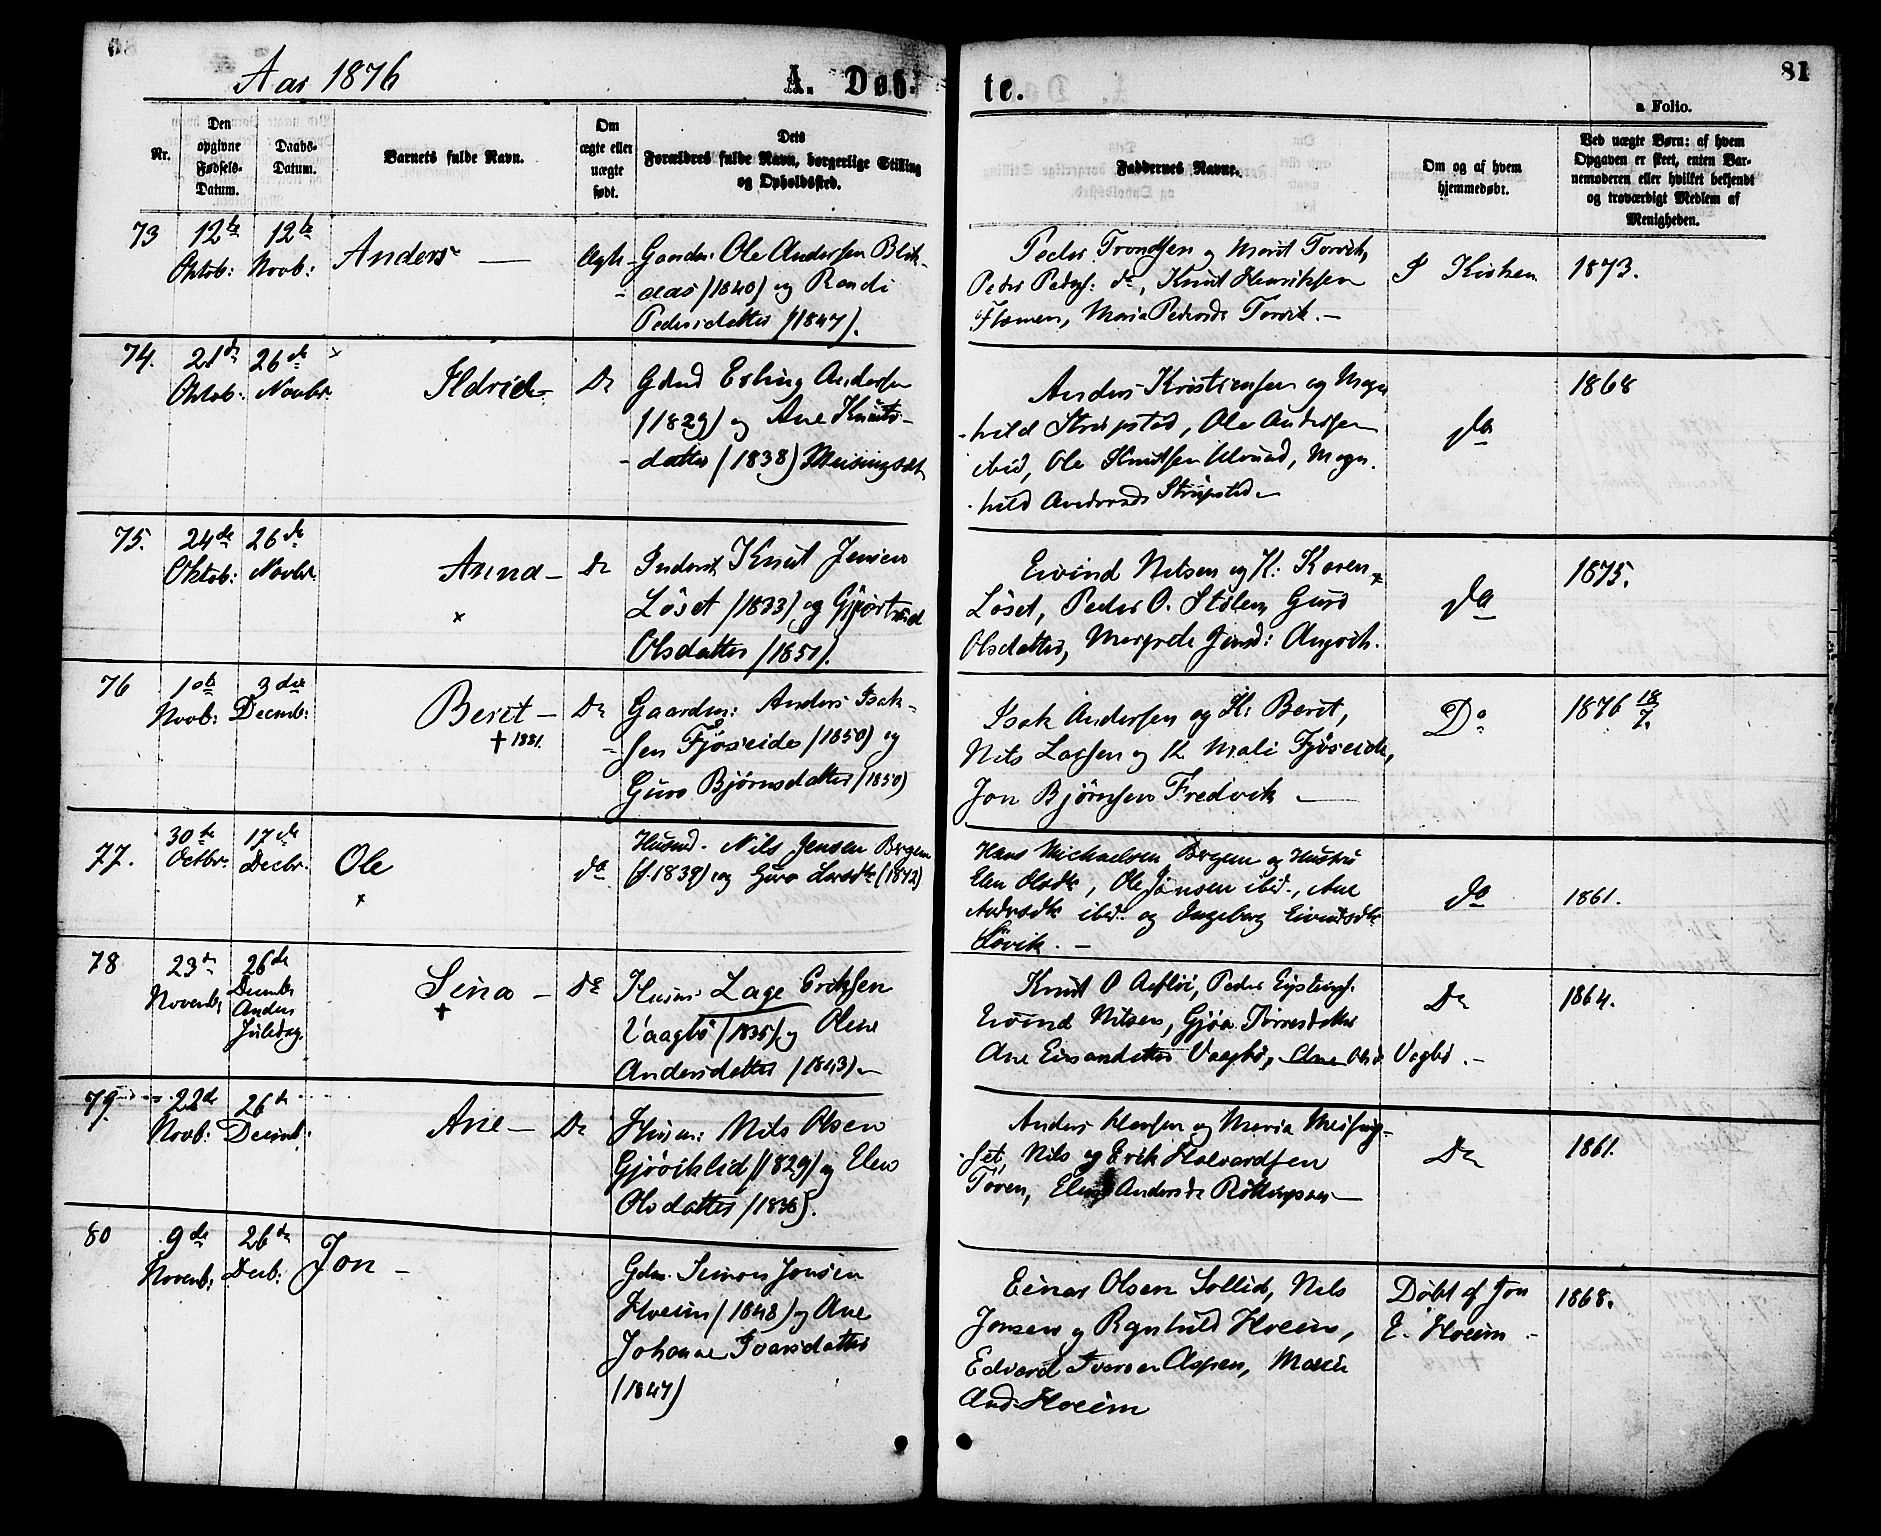 Aar 1876
A. Døb-
te.
81
a Folio.
Nr.
Den
opgivne
Fødsels-
Datum.
Daabs-
Datum.
Barnets fulde Navn.
Om
ægte eller
uægte
født.
Dets
Forældres fulde Navn, borgerlige Stilling
og Opholdssted.
Faddernes Navne.
Om og af hvem
hjemmedøbt.
Ved uægte Børn: af hvem
Opgaven er skeet, enten Bar-
nemoderen eller hvilket bekjendt
og troværdigt Medlem af
Menigheden.
73
12te
Oktob:
12te
Novb:
Anders
Ægte
Gaardm: Ole Andersen Blik-
aas (1840) og Randi
Pedersdatter (1847).
Peder Trondsen og Marit Torvik,
Peder Peders: do, Knut Henriksen
Flemmen, Maria Pedersd Torvik.
I Kirken
1873.
74.
21de
Oktob:
26de
Novbr.
Ildrid
Do
Gdmd Erling Andersen
(1829) og Ane Knuts-
datter (1838) Meisingset
Anders Kristiansen og Magn-
hild Strupstad, Ole Andersen
ibid, Ole Knutsen Ulvund, Magn-
hild Andersd Strupstad
do
1868
75.
24de
Oktob:
26de
Novbr
Anna
Do
Inderst Knut Jensen
Løset (1823) og Gjørtrud
Olsdatter (1851).
Eivind Nilsen og K: Karen
Løset, Peder O. Stølen, Guro
Olsdatter, Margrete Jensd: Angvik.
do
1875.
76
1ste
Novb:
3die
Decmb:
Beret
† 1881.
Do
Gaardm: Anders Isak-
sen Fjøseide (1850) og
Guro Bjørnsdatter (1850)
Isak Andersen og K: Berit,
Nils Larsen og K Mali Fjøseide,
Jon Bjørnsen Fredvik
Do
1876 18/7.
77.
30te
Octbr.
17de
Decbr.
Ole
do
Husmd. Nils Jensen Bergem
(f. 1839) og Guro Larsdtr (1842)
Hans Michaelsen Bergem og Hustru
Elen Olsdtr, Ole Jensen ibid., Ane
Andersdtr ibid. og Ingeborg Eivindsdtr
Løvik.
do
1861.
78
23de
Novemb:
26de
Decembr
Anden
Juledag.
Sina
†
Do
Husm: Lage Eriksen
Vaagbø (1835) og Oline
Andersdatter (1843)
Knut O Aasprøi, Peder
Eivind Nilsen, Gjøa Toresdatter
Ane Eivandatter Vaagbø, Ane Olsd Vagbø.
Do
1864.
79.
22de
Novb:
26de
Decemb:
Ane
Do
Husm: Nils Olsen
Gjøviklid (1829) og Elen
Olsdatter (1836).
Anders Hansen og Maria Meising-
set, Nils og Erik Halvardsen
Tøven, Elen Andersdr
Do
1861.
80
9de
Novemb:
26de
Decb:
Jon
Gdm. Simon Jonsen
Hoeim (1848) og Ane
Johanne Ivarsdatter
(1847)
Einar Olsen Sollid, Nils
Jonsen og Ragnhild Hoeim,
Edvard Iversen Aspen, Marie
And. Hoeim
Døbt af Jon
E. Hoeim
1868.